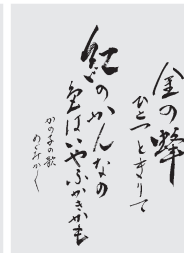 金の蜂
ひとつときりて
紅のかんなの
色はいやふかきかも
かの子の歌